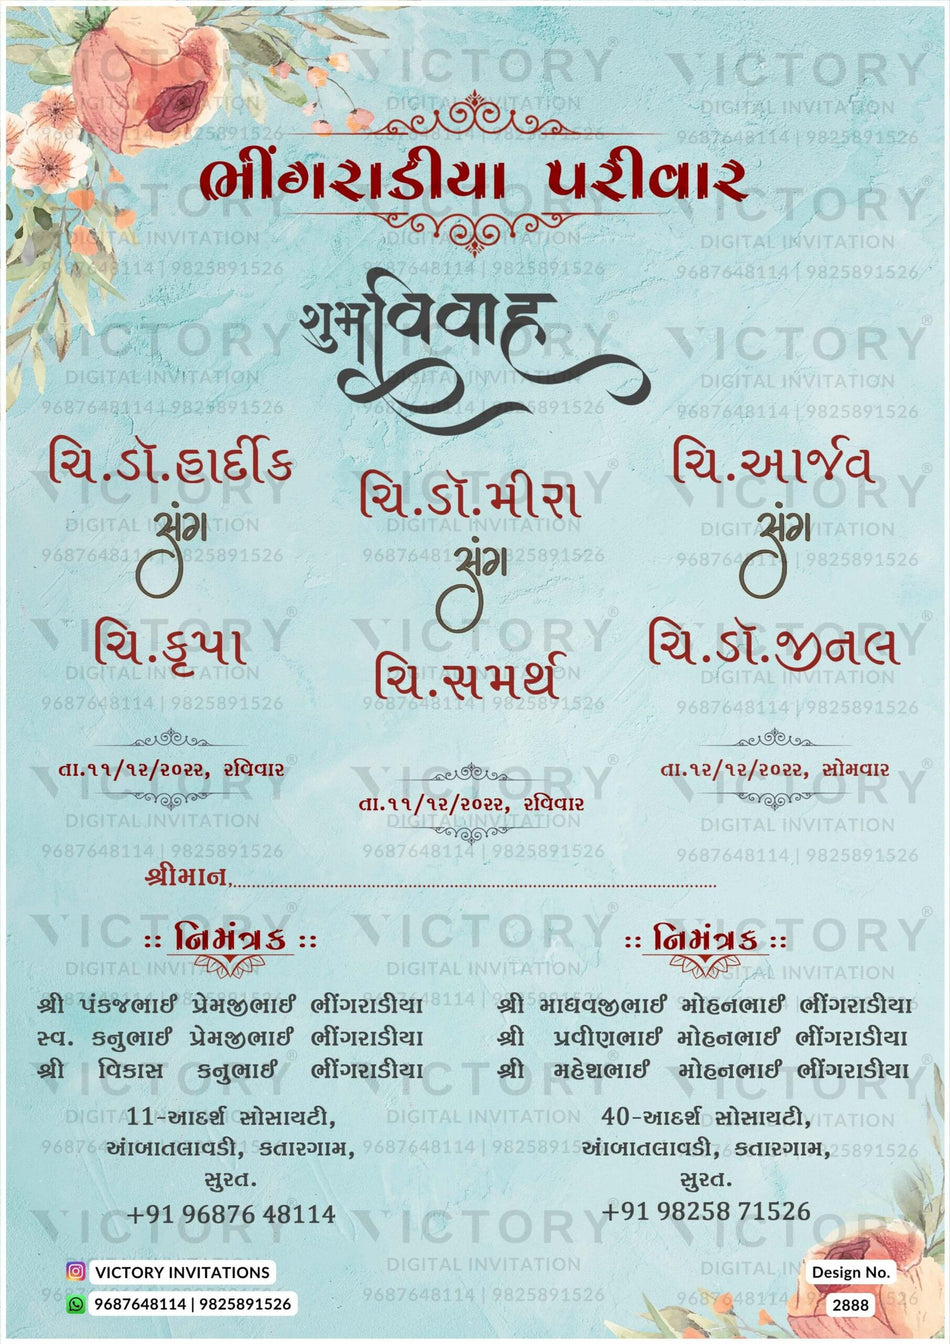 ભીંગરાડીયા પરીવાર
શુભ વિવાહ
ચિ.ડૉ.હાર્દીક
સંગ
ચિ.કૃપા
તા.૧૧/૧૨/૨૦૨૨, રવિવાર
ચિ.ડૉ.મીરા
સંગ
ચિ.સમર્થ
તા.૧૧/૧૨/૨૦૨૨, રવિવાર
ચિ.આર્જવ
સંગ
ચિ.ડૉ.જીનલ
તા.૧૨/૧૨/૨૦૨૨, સોમવાર
શ્રીમાન,......................................................
:: નિમંત્રક ::
શ્રી પંકજભાઈ પ્રેમજીભાઈ ભીંગરાડીયા
સ્વ. કનુભાઈ પ્રેમજીભાઈ ભીંગરાડીયા
શ્રી વિકાસ કનુભાઈ ભીંગરાડીયા
11-આદર્શ સોસાયટી,
આંબાતલાવડી, કતારગામ,
સુરત.
+91 96876 48114
:: નિમંત્રક ::
શ્રી માધવજીભાઈ મોહનભાઈ ભીંગરાડીયા
શ્રી પ્રવીણભાઈ મોહનભાઈ ભીંગરાડીયા
શ્રી મહેશભાઈ મોહનભાઈ ભીંગરાડીયા
40-આદર્શ સોસાયટી,
આંબાતલાવડી, કતારગામ,
સુરત.
+91 98258 71526
VICTORY INVITATIONS
9687648114 | 9825891526
Design No.
2888
VICTORY®
DIGITAL INVITATION
9687648114 | 9825891526